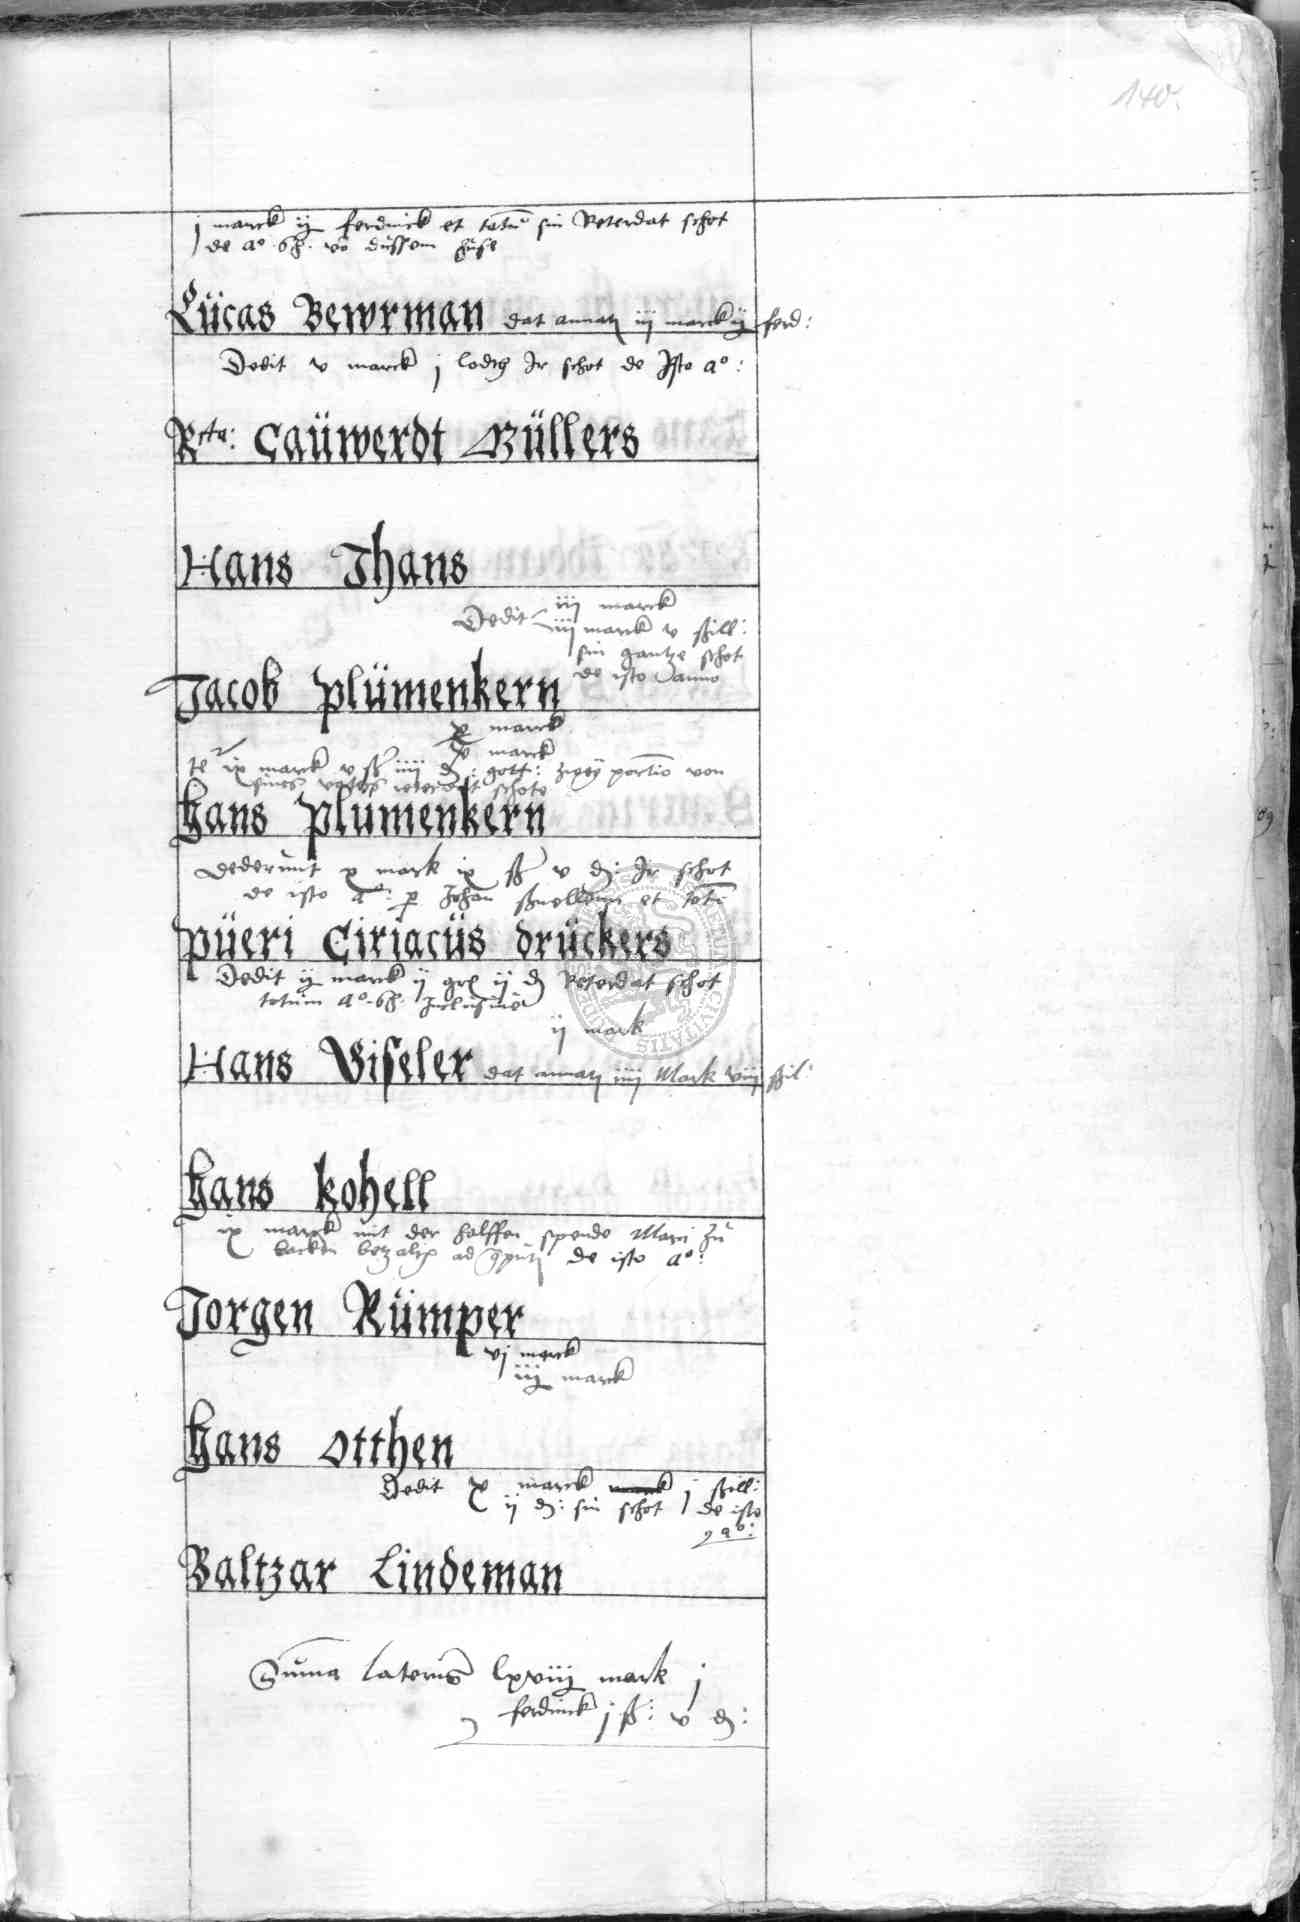 140.
j marck ij ferdinck et totum sin Reterdat schot
de a° 6h. vo dussem huse
Lücas Bewrman dat annatj iij marck ij ferd:
Dedit v marck j lodtg Ir schot de Isto a°:
Rcta: Caüwerdt Büllers
Hans Thans
Dedit iij marck
iiij marck v ßill:
sin gantze schot
de isto anno
Jacob Plümenkern
x marck
v marck
ix marck v ß iiij d: gott: portio von
schote
Hans Plumenkern
Dederunt x mark ix ß v d: Ir schot
de isto a°: p Johan et totu
Püeri Ciriacüs Drückers
Dedit ij marck ij gr ij d Reterdat schot
totum a° 6h. Inclusive
ij mark
Hans Viseler dat annatj iiij Mark viij ßil:
Hans Kohell
ix marck mit der helffen spende Marci zu
backen ad de isto a°:
Jorgen Rümper
vj marck
iij marck
Hans Otthen
Dedit x marck j ßill:
ij d: sin schot de isto
a°:
Baltzar Lindeman
Suma lateris lxviij mark j
ferdinck j ß: v d: